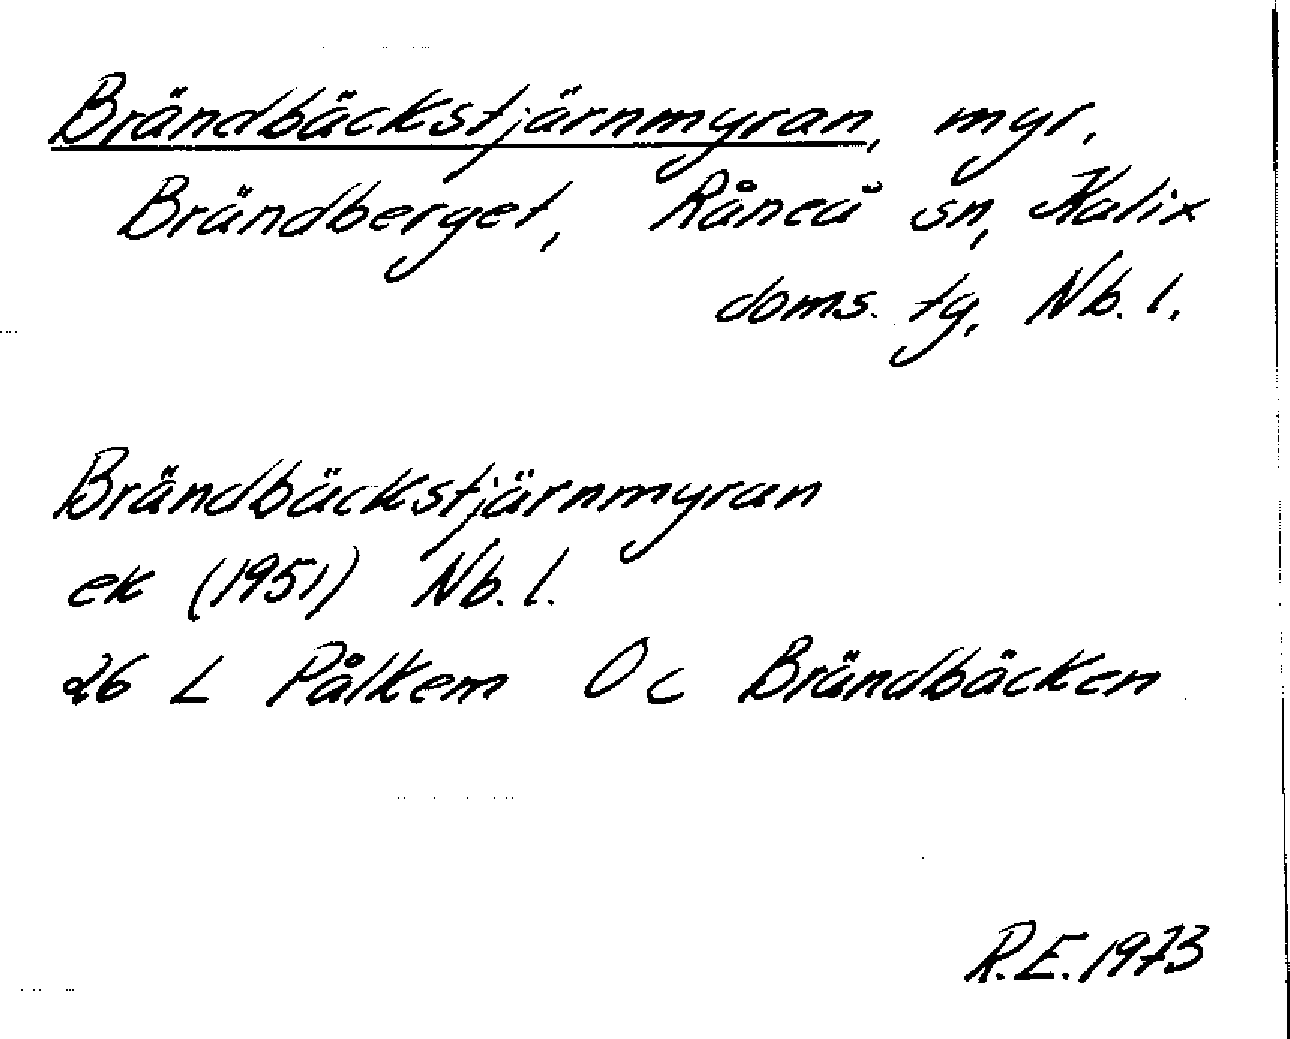 Brändbäckstjärnmyran, myr,
Brändberget, Råneå sn, Kalix
doms. tg, Nb. l.
Brändbäckstjärnmyran
ek (1951) Nb. l.
26 L Pålkem O c Brändbäcken
R.E. 1973